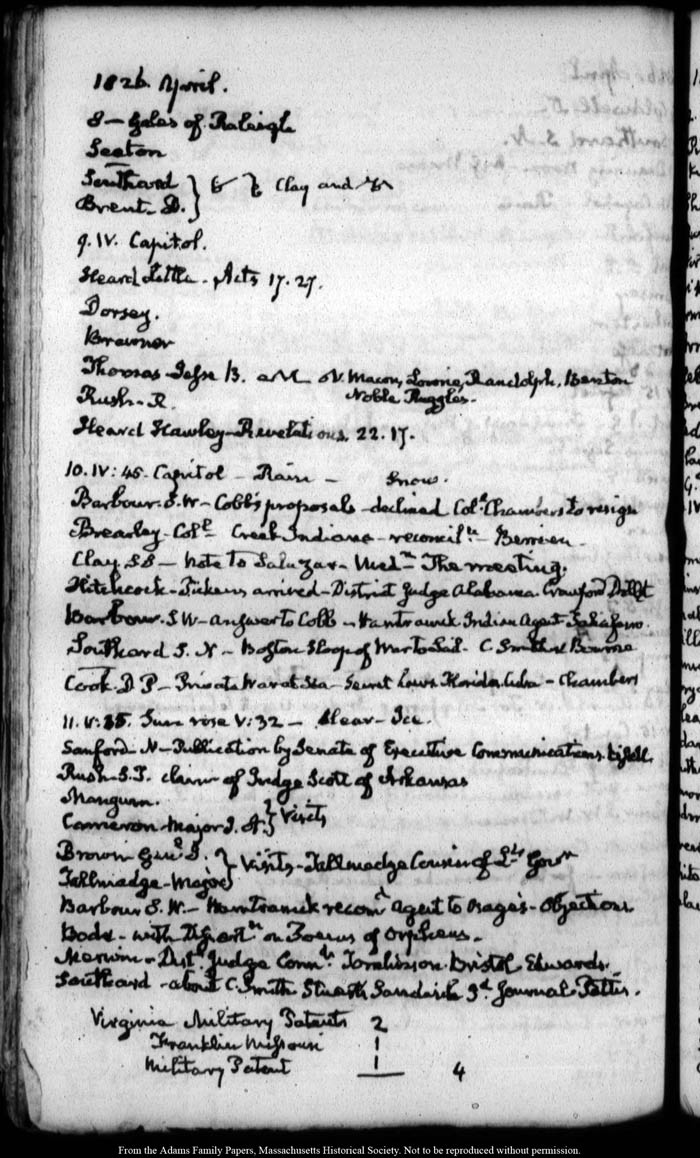 1826. April.
8 — Gales of Raleigh
Seaton
Southard } Clay and
Brent. D.
9. IV. Capitol.
Heard Little. Acts 17. 27.
Dorsey.
Brawner
Thomas - Jesse B. Macon, Lowrie, Randolph, Benton
Noble Ruggles.
Rush. R.
Heard Hawley - Revelations. 22. 17.
10. IV: 45. Capitol - Rain - Snow.
Barbour. S. W - Cobb's proposals - declined Col. Chambers to resign
Brearley - Col. Creek Indians - reconcil - Berrien.
Clay. SS - Note to Salazar - The meeting.
Hitchcock - Pickens arrived - District Judge Alabama. Crawford
Barbour. S W - answer to Cobb - Hamtramck Indian Agent
Southard S. N - Boston Sloop of War to Sail - C. Smith &
Cook. D P - Private War at Sea - Secret Laws Florida Cuba - Chambers
11. V: 35. Sun rose V: 32 - Clear - Ice.
Sanford. N - Publication by Senate of Executive Communications.
Rush - S. T. claim of Judge Scott of Arkansas
Mangum.
Cameron Major } Visits
Brown Gen. } Visits - Tallmadge Cousin of Lt. Govr
Tallmadge - Major
Barbour S. W. - Hamtramck recomd. agent to Osages - Objections
Boda - with on of Orpheus.
Merwin - Distt. Judge Connt. Tomlinson. Bristol. Edwards.
Southard - about C. Smith Sandwich Journal. Pettis.
Virginia Military Patents 2
Franklin Missouri 1
Military Patent 1
4
From the Adams Family Papers, Massachusetts Historical Society. Not to be reproduced without permission.